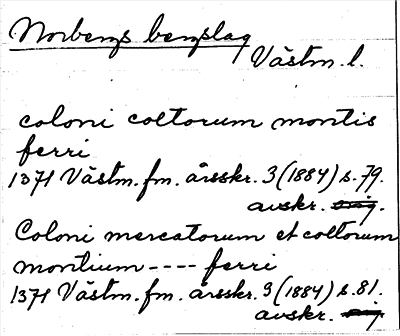 Norbergs bergslag
Västm. l.
coloni coltorum montis
ferri
1371 Västm. fm. årsskr. 3 (1884) s. 79.
avskr.
Coloni mercatorum et coltorum
montium ---- ferri
1371 Västm. fm. årsskr. 3 (1884) s. 81.
avskr.